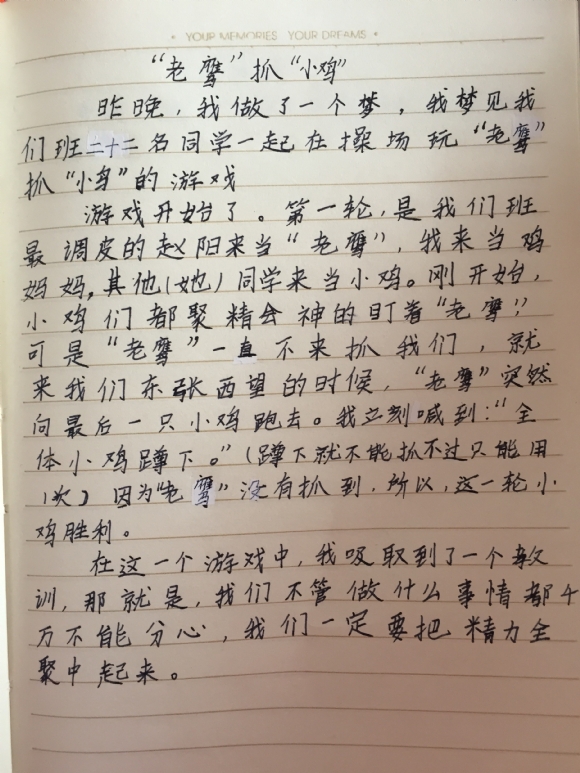 YOUR MEMORIES YOUR DREAMS
“老鹰”抓“小鸡”
昨晚，我做了一个梦，我梦见我
们班二十二名同学一起在操场玩“老鹰”
抓“小鸟”的游戏
游戏开始了。第一轮，是我们班
最调皮的赵阳来当“老鹰”，我来当鸡
妈妈，其他（她）同学来当小鸡。刚开始，
小鸡们都聚精会神的盯着“老鹰”！
可是“老鹰”一直不来抓我们，就
来我们东张西望的时候，“老鹰”突然
向最后一只小鸡跑去。我立刻喊到：“全
体小鸡蹲下。”（蹲下就不能抓不过只能用
1次）因为“老鹰”没有抓到，所以，这一轮小
鸡胜利。
在这一个游戏中，我吸取到了一个教
训，那就是，我们不管做什么事情都千
万不能分心，我们一定要把精力全
聚中起来。